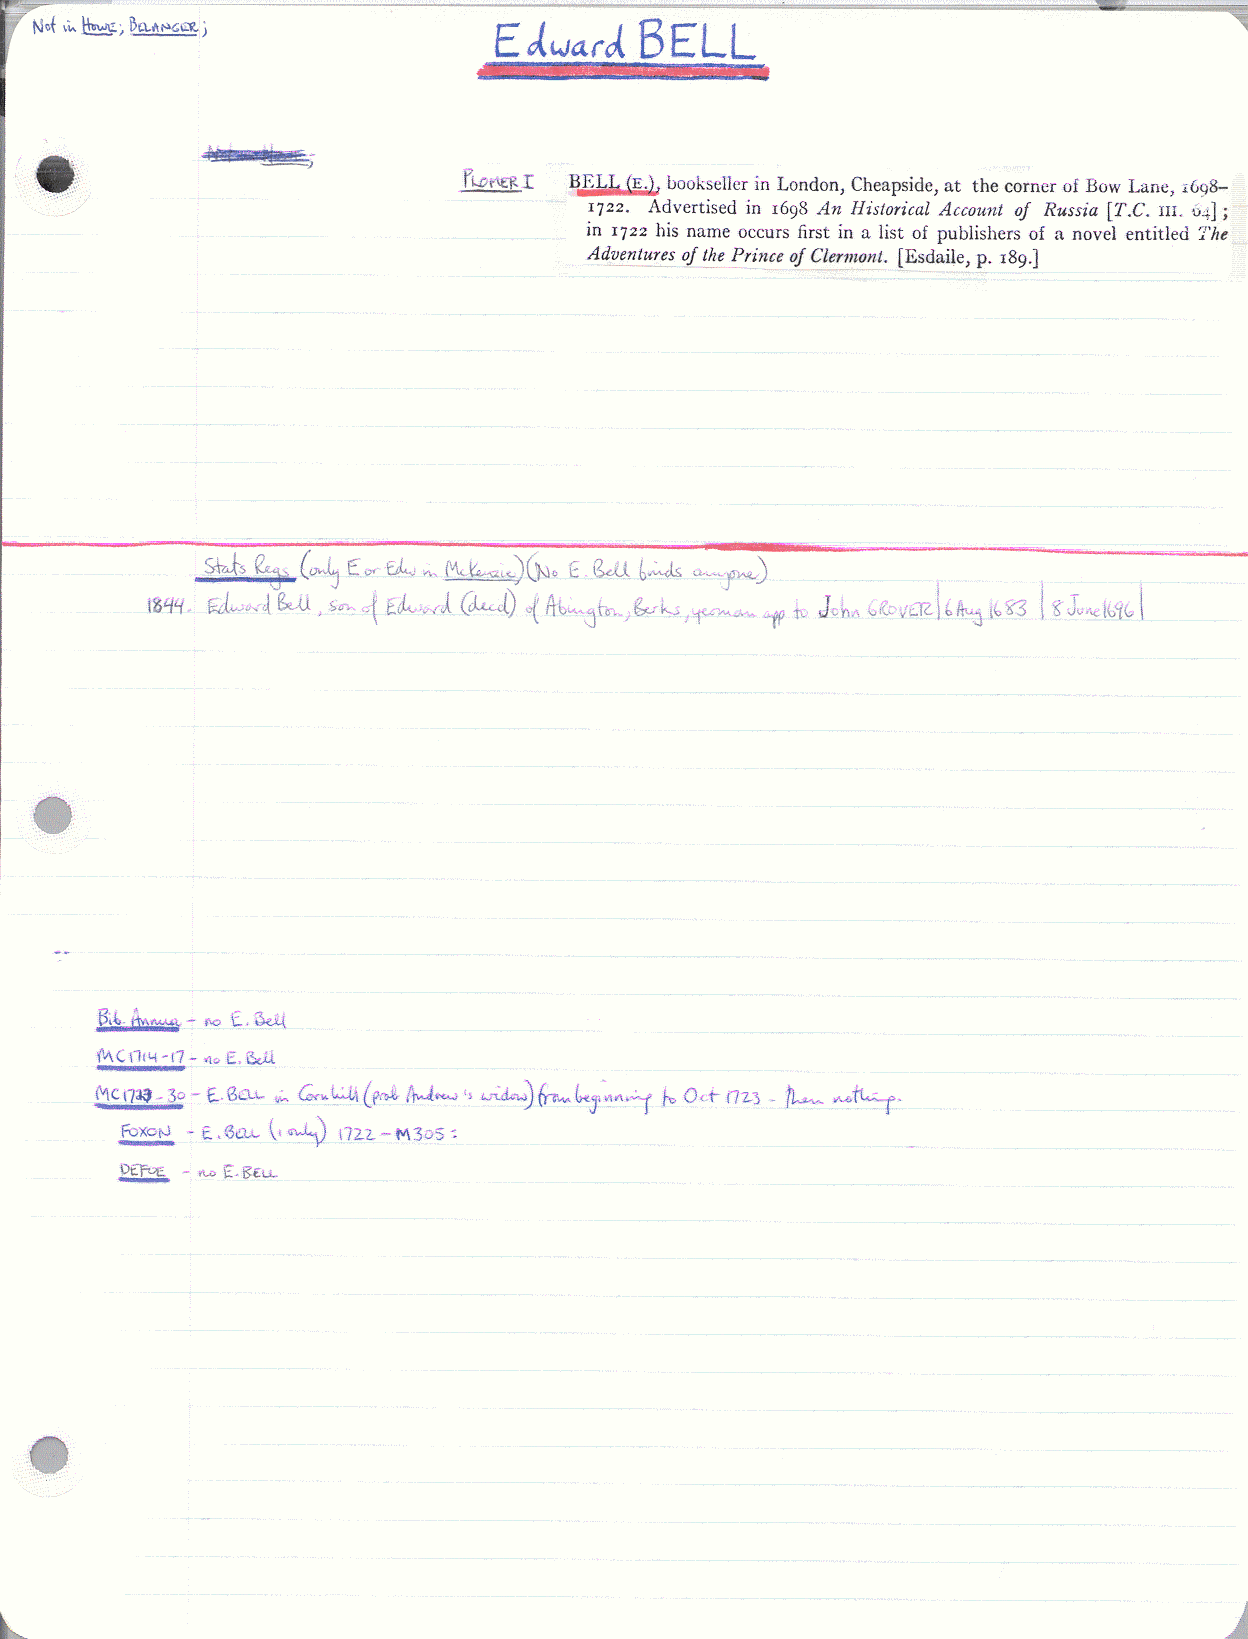 Not in Howe; BELANGER;
Edward BELL
PLOMER I
BELL (E.), bookseller in London, Cheapside, at the corner of Bow Lane, 1698–
1722. Advertised in 1698 An Historical Account of Russia [T.C. III. 64];
in 1722 his name occurs first in a list of publishers of a novel entitled The
Adventures of the Prince of Clermont. [Esdaile, p. 189.]
Stats Regs (only E or Edw in McKenzie) (No E. Bell binds anyone)
1844. Edward Bell, son of Edward (decd) of Abington, Berks, yeoman app to John GROVER | 6 Aug 1683 | 8 June 1696 |
Bib. Annua - no E. Bell
MC1714-17 - no E. Bell
MC1723-30 - E. BELL in Cornhill (prob Andrew's widow) from beginning to Oct 1723 - then nothing.
FOXON - E. BELL (1 only) 1722 - M305:
DEFOE - no E. BELL